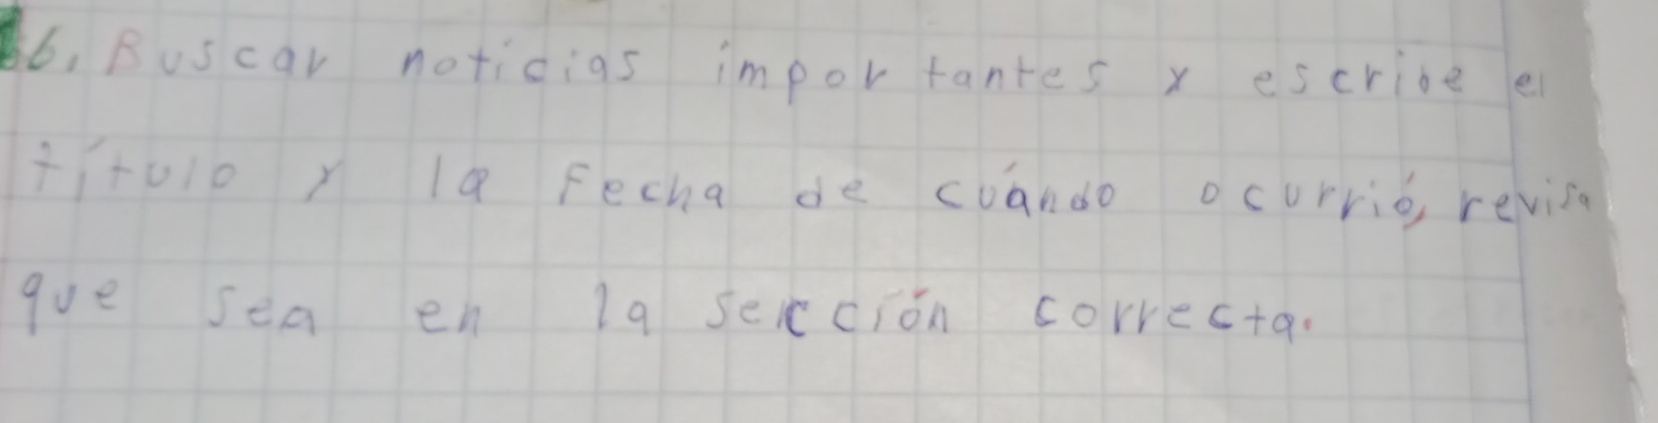 6. Buscar noticias importantes y escribe el
título y la Fecha de cuándo ocurrió, revisa
que sea en la sección correcta.